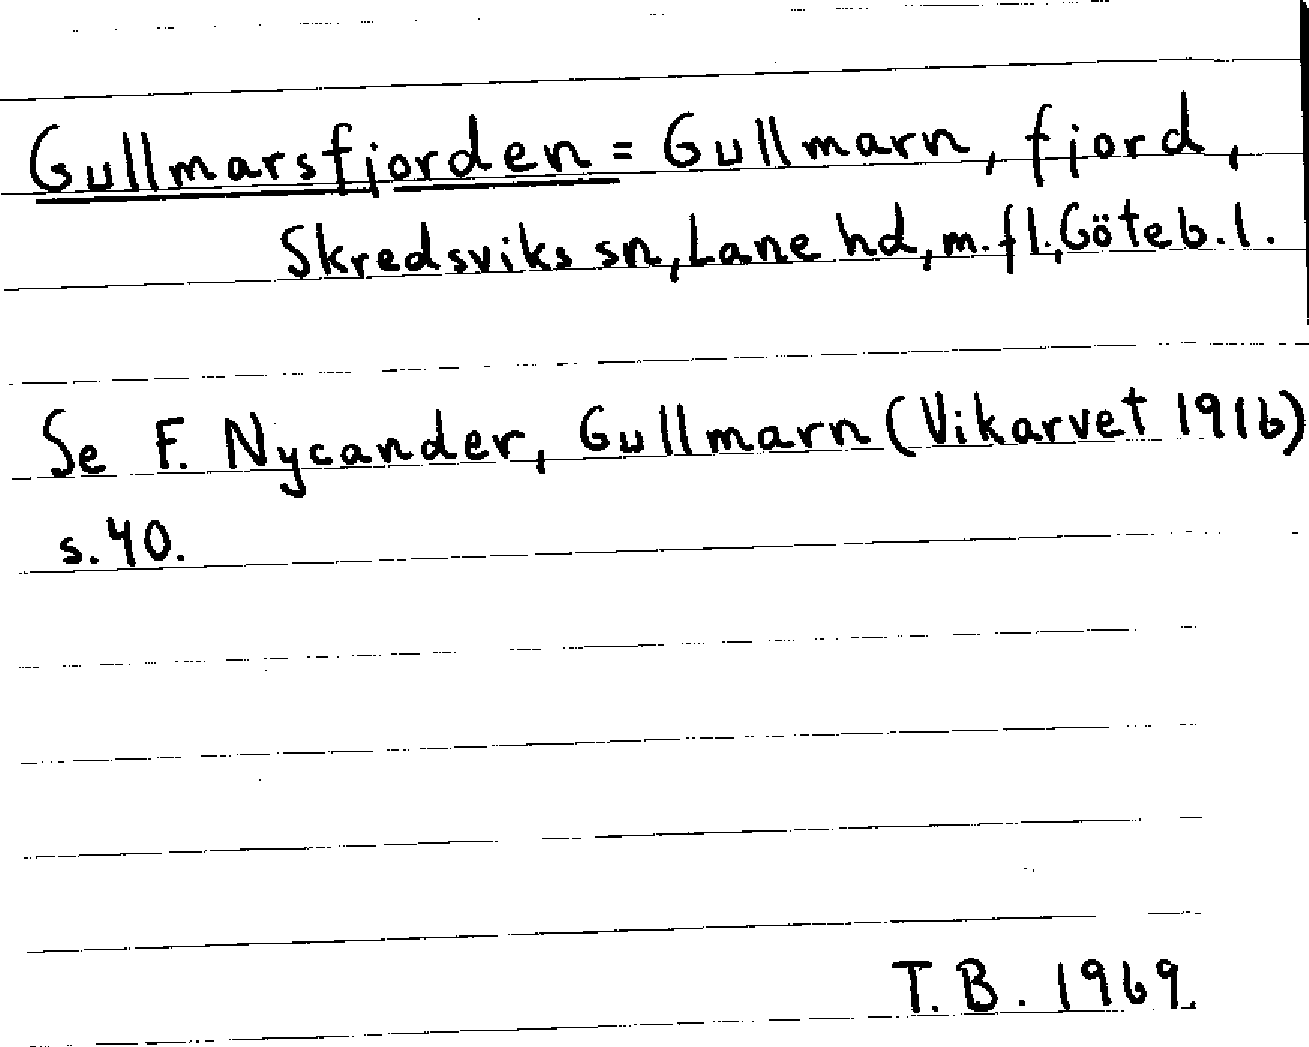 Gullmarsfjorden = Gullmarn, fjord,
Skredsviks sn, Lane hd, m. fl., Göteb. l.
Se F. Nycander, Gullmarn (Vikarvet 1916)
s. 40.
T. B. 1969.